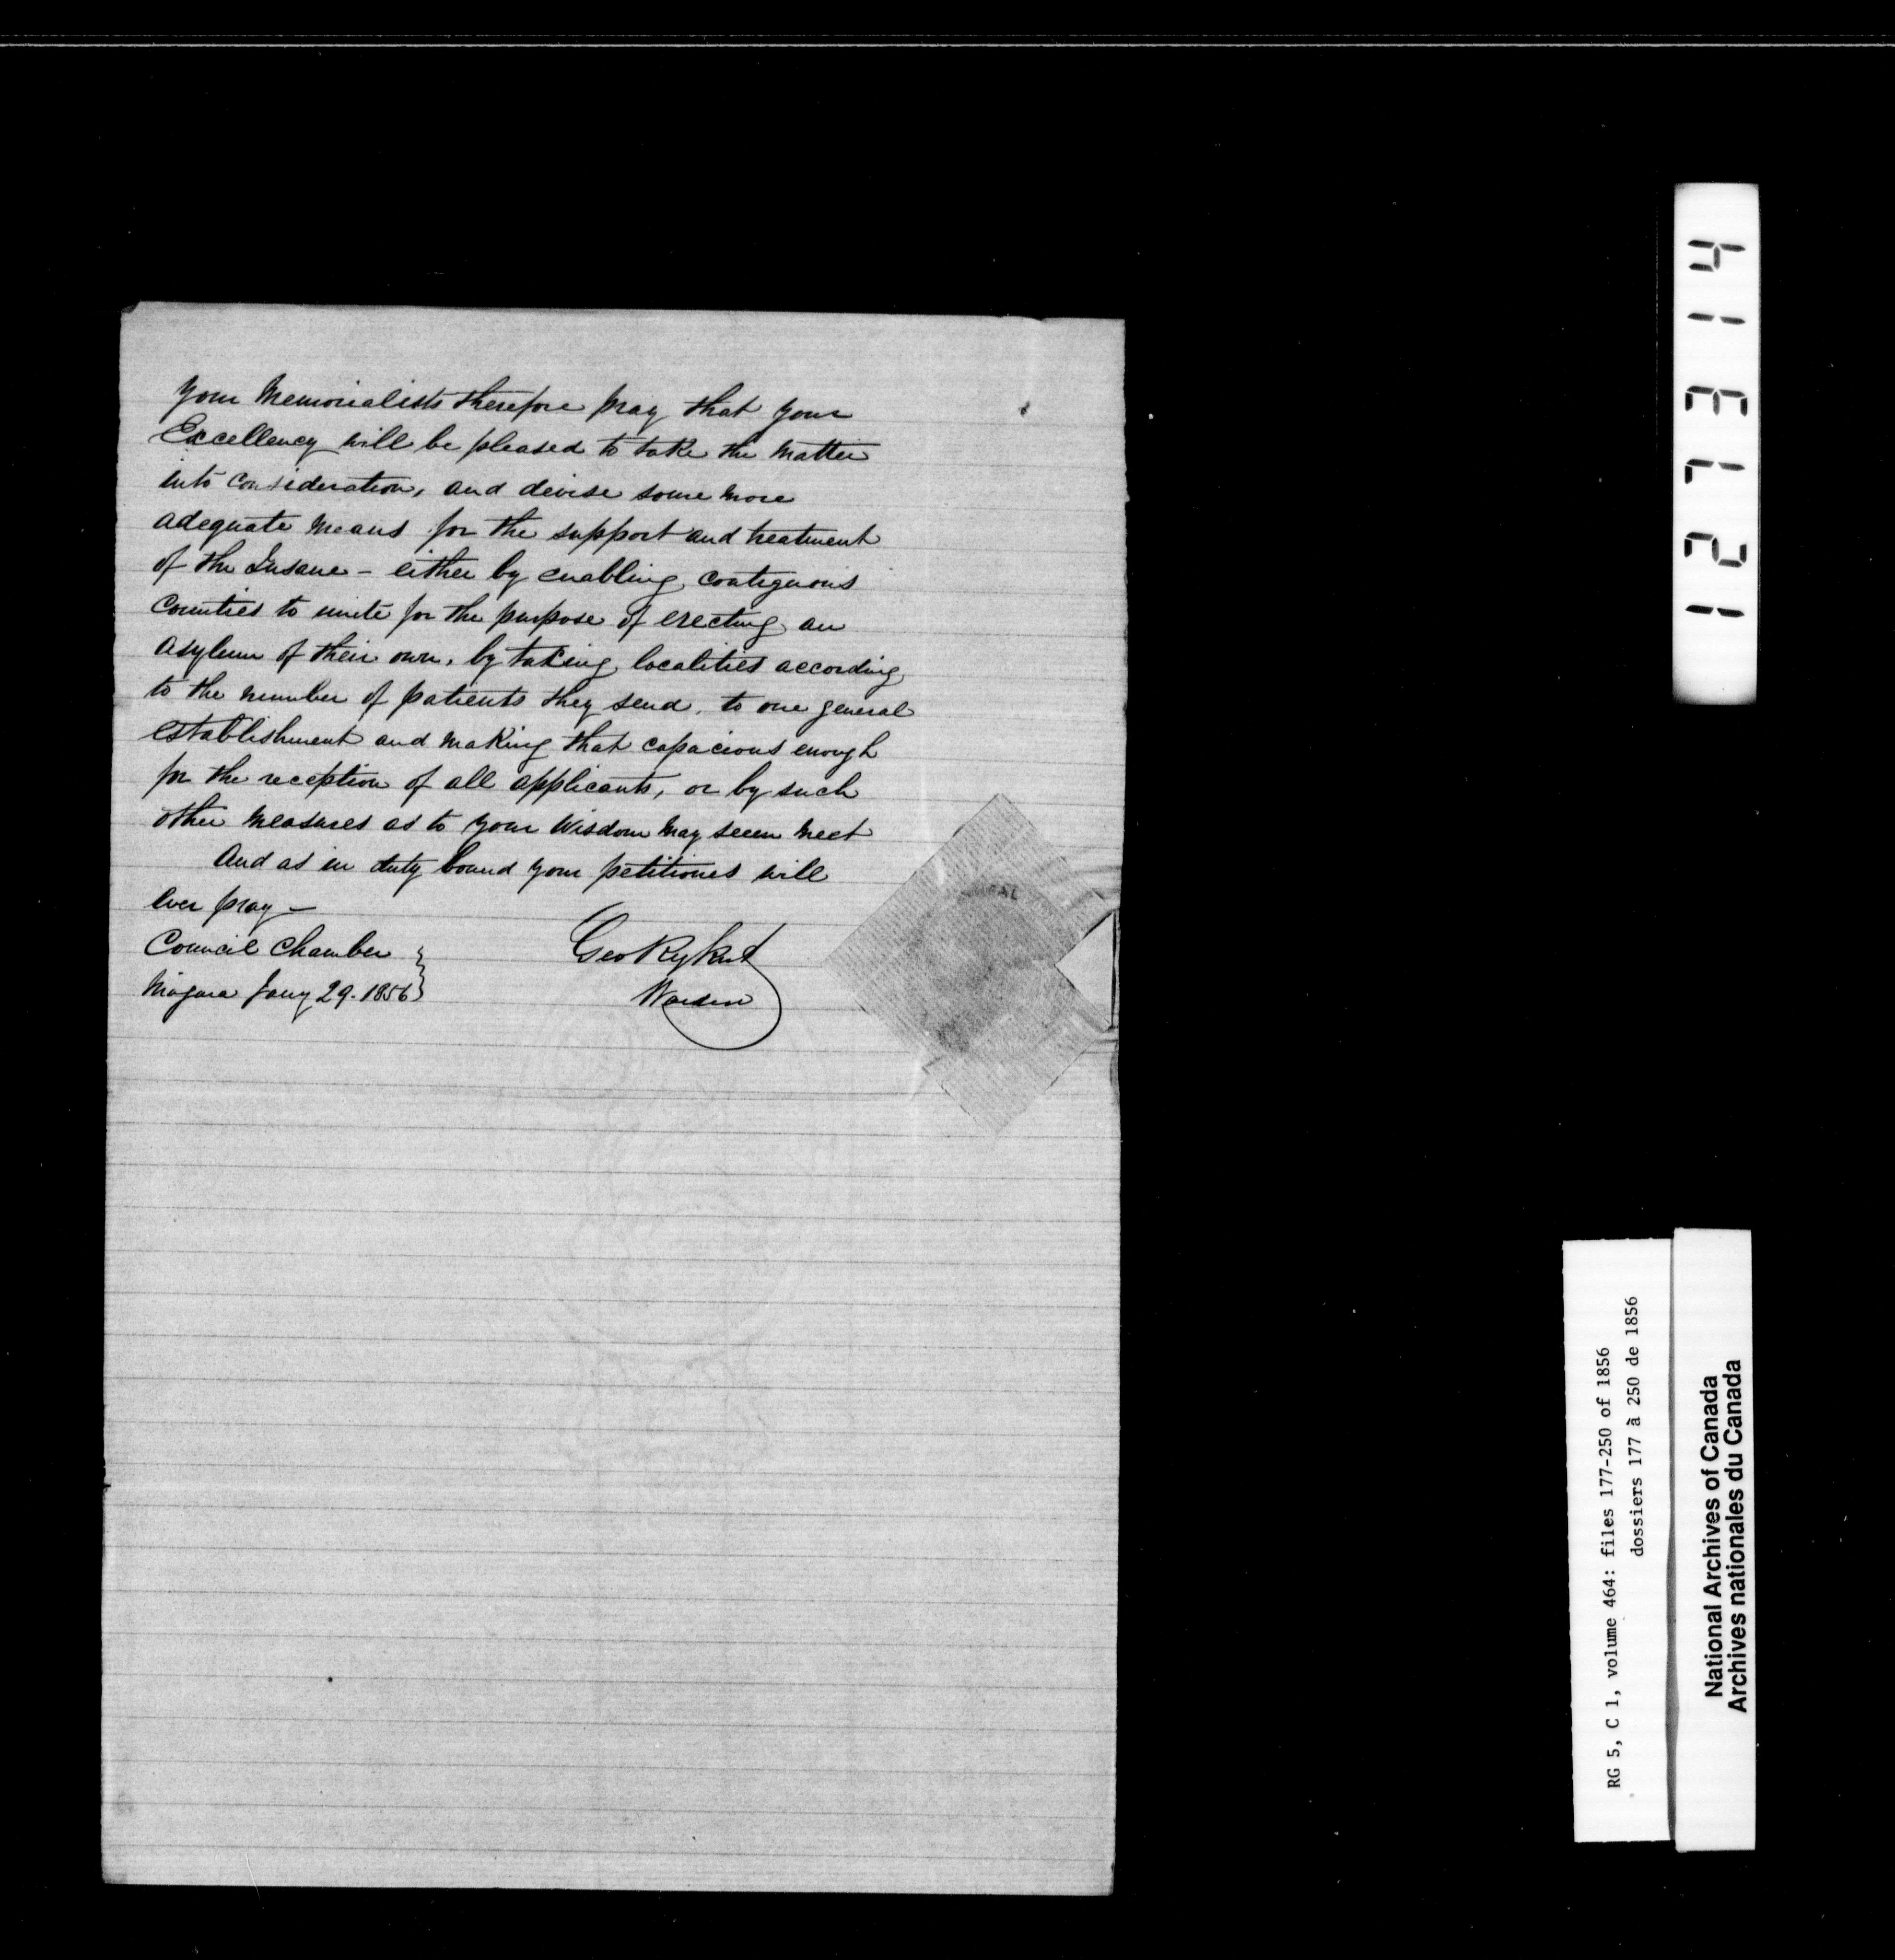 Your Memorialists therefore pray that your
Excellency will be pleased to take the matter
into consideration, and devise some more
adequate means for the support and treatment
of the Insane - either by enabling contiguous
Counties to unite for the purpose of erecting an
Asylum of their own, by taking localities according
to the number of patients they send, to one general
establishment and making that capacious enough
for the reception of all applicants, or by such
other measures as to your Wisdom may seem meet
And as in duty bound your petitioners will
ever pray -
Council Chamber
Niagara Jany 29. 1856
Geo Rykert
Warden
127314
RG 5, C 1, volume 464: files 177-250 of 1856
dossiers 177 à 250 de 1856
National Archives of Canada
Archives nationales du Canada